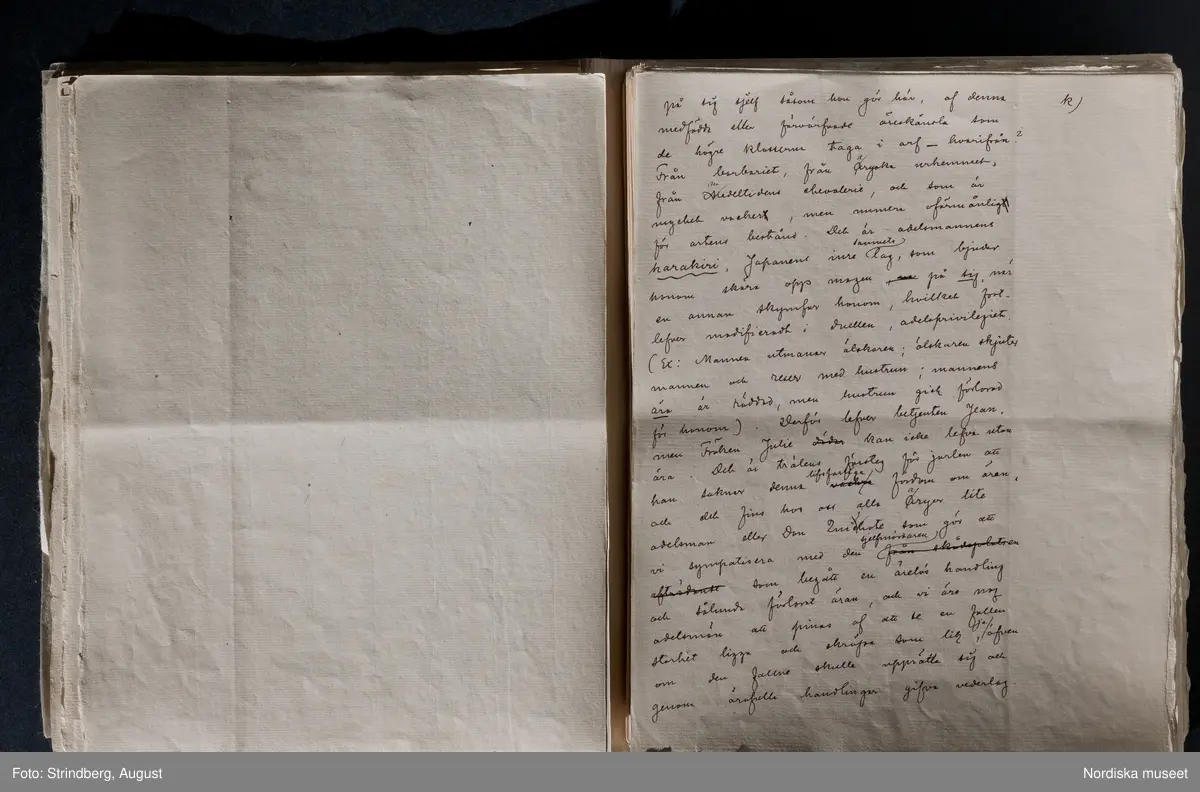 k)
på sig sjelf såsom hon gör här, af denna
medfödda eller förvärfvade äreskänsla som
de högre klasserna taga i arf – hvarifrån?
Från barbariet, från Ariska urhemmet,
från Medeltidens chevaleri, och som är
mycket vackert, men numera oförmånligt
för artens bestånd. Det är adelsmannens
harakiri, Japanens inre samvets lag, som bjuder
honom skära opp magen på sig, när
en annan skymfar honom, hvilket fort-
lefver modifieradt i duellen, adelsprivilegiet.
(Ex: Mannen utmanar älskaren; älskaren skjuter
mannen och reser med hustrun; mannens
ära är räddad, men hustrun gick förlorad
för honom). Derför lefver betjenten Jean,
men Fröken Julie kan icke lefva utan
ära. Det är trälens försteg för jarlen att
han saknar denna lifsfarliga fördom om äran,
och det fins hos oss alla Aryer lite
adelsman eller Don Quichote som gör att
vi sympatisera med den sjelfmördaren från skådeplatsen
afträdande som begått en ärelös handling
och sålunda förlorat äran, och vi äro nog
adelsmän att pinas af att se en fallen
storhet ligga och skräpa som lik, ja! äfven
om den fallne skulle upprätta sig och
genom ärofulla handlingar gifva vederlag.
Foto: Strindberg, August
Nordiska museet